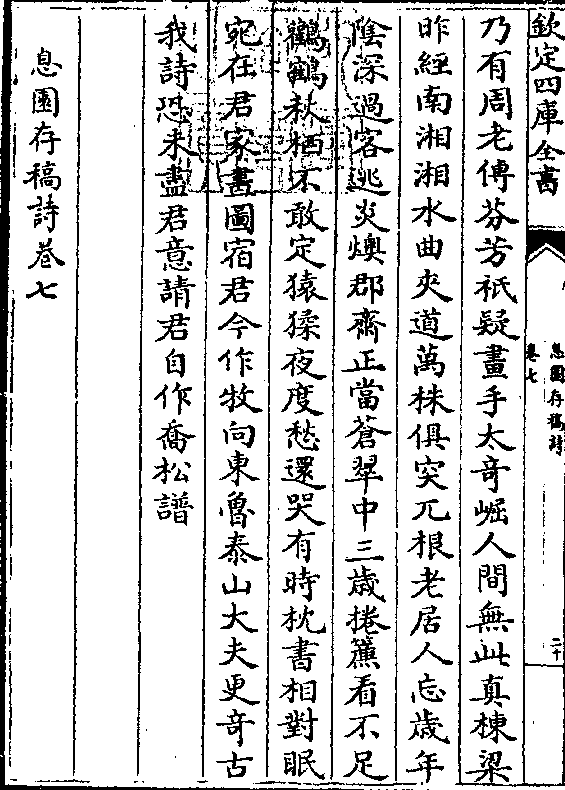 欽定四庫全書
息園存稿詩
卷七
二十
乃有周老傳芬芳祗疑畫手太奇崛人間無此真棟梁
昨經南湘湘水曲夾道萬株俱突兀根老居人忘歲年
陰深過客逃炎燠郡齋正當蒼翠中三歲捲簾看不足
鸛鶴秋栖不敢定猿猱夜度愁還哭有時枕書相對眠
宛在君家畫圖宿君今作牧向東魯泰山大夫更奇古
我詩恐未盡君意請君自作喬松譜
息園存稿詩卷七